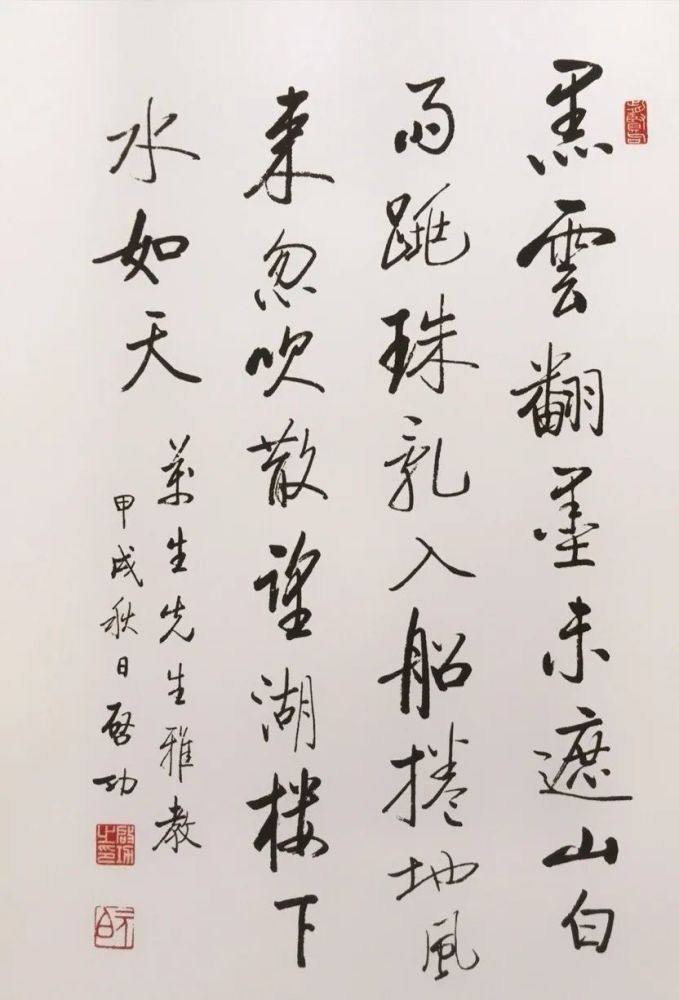 黑雲翻墨未遮山白
雨跳珠亂入船捲地風
來忽吹散望湖樓下
水如天
萬生先生雅教
甲戌秋日啓功
啟功之印
元白